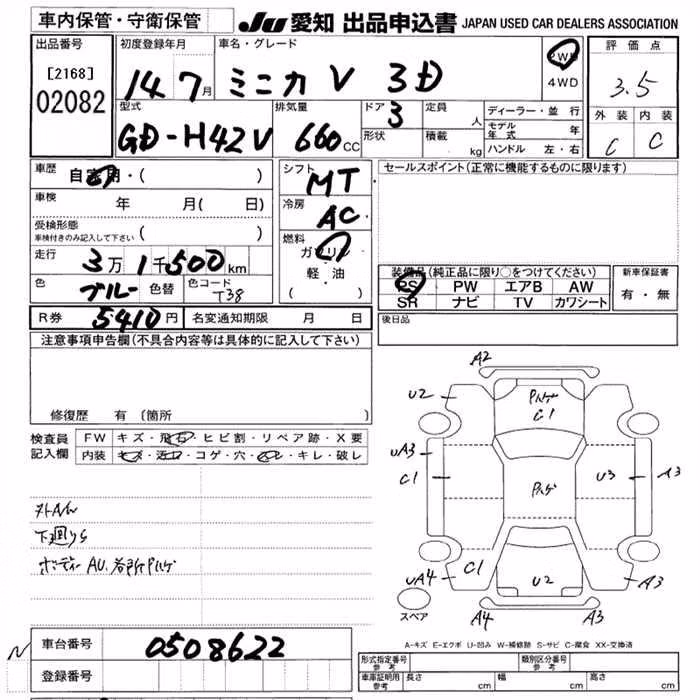 車内保管・守衛保管
JU 愛知 出品申込書 JAPAN USED CAR DEALERS ASSOCIATION
出品番号
[2168]
02082
初度登録年月
14 7月
車名・グレード
ミニカ V 3D
2WD
4WD
評価点
3.5
外装 内装
C C
型式
GD-H42V
排気量
660cc
ドア
3
形状
定員
人
積載
kg
ディーラー・並行
モデル年式 年
ハンドル 左・右
車歴
自家用・( )
車検
年 月( 日)
受検形態
車検付きのみ記入して下さい ( )
走行
3万1千500km
色
ブルー
色替
色コード
T38
シフト
MT
冷房
AC
燃料
ガソリン
軽・油
( )
セールスポイント(正常に機能するものに限ります)
装備品(純正品に限り○をつけてください)
PS PW エアB AW
SR ナビ TV カワシート
新車保証書
有・無
R券 5410円 名変通知期限 月 日
後日品
注意事項申告欄(不具合内容等は具体的に記入して下さい)
修復歴 有(箇所 )
検査員
記入欄
FW キズ・飛石・ヒビ割・リペア跡・X要
内装 キズ・汚れ・コゲ・穴・ ・キレ・破レ
下廻りS
ボディーAU、各所
A2
U2
C1
UA3
C1
U3
A3
C1
U2
UA4
A3
A4
A3
スペア
A-キズ E-エクボ U-凹み W-補修跡 S-サビ C-腐食 XX-交換済
N
車台番号
0508622
登録番号
形式指定番号
参考
類別区分番号
参考
車庫証明用
参考
長さ cm 幅 cm 高さ cm